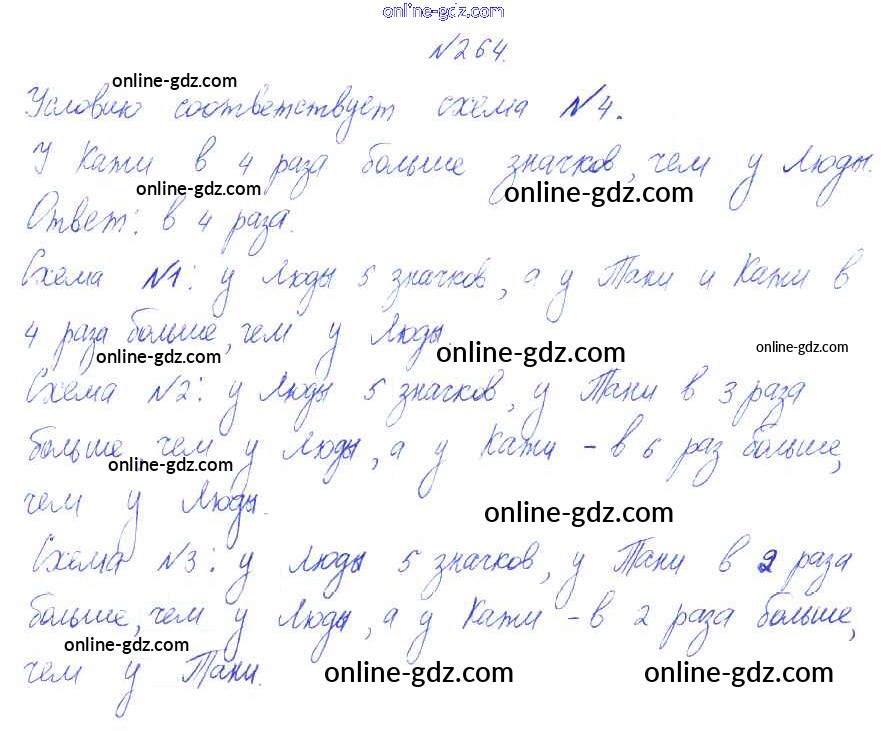 online-gdz.com
№264.
online-gdz.com
Условию соответствует схема №4.
У Кати в 4 раза больше значков, чем у Люды.
online-gdz.com online-gdz.com
Ответ: в 4 раза.
Схема №1: у Люды 5 значков, а у Тани и Кати в
4 раза больше, чем у Люды.
online-gdz.com online-gdz.com online-gdz.com
Схема №2: у Люды 5 значков, у Тани в 3 раза
больше, чем у Люды, а у Кати – в 6 раз больше,
online-gdz.com
чем у Люды.
online-gdz.com
Схема №3: у Люды 5 значков, у Тани в 2 раза
больше, чем у Люды, а у Кати – в 2 раза больше,
online-gdz.com
чем у Тани.
online-gdz.com online-gdz.com